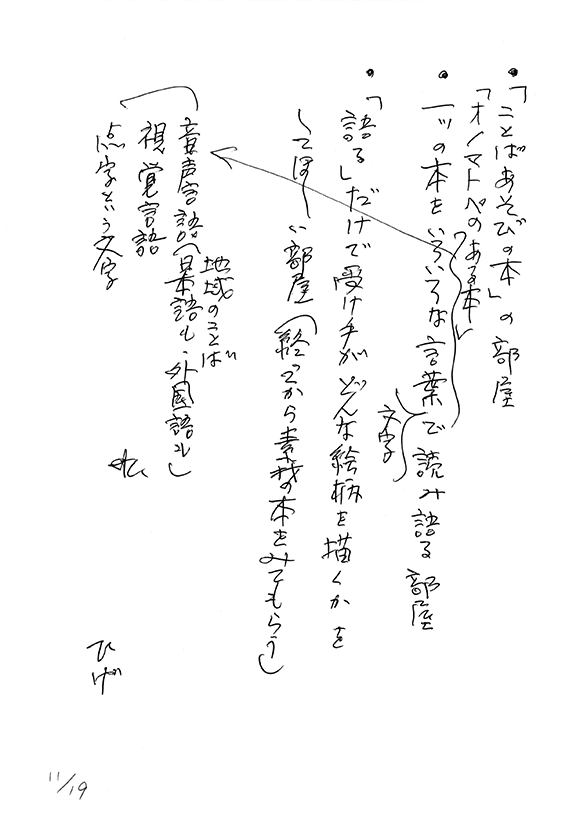 ・「ことばあそびの本」の部屋
「オノマトペのある本」
・一ツの本をいろいろな言葉で読み語る部屋
文字
・「語る」だけで受け手がどんな絵柄を描くかを
してほしい部屋（終ってから素材の本をみてもらう）
地域のことば
音声言語（日本語も・外国語も）
視覚言語
点字という文字
ひげ
11/19